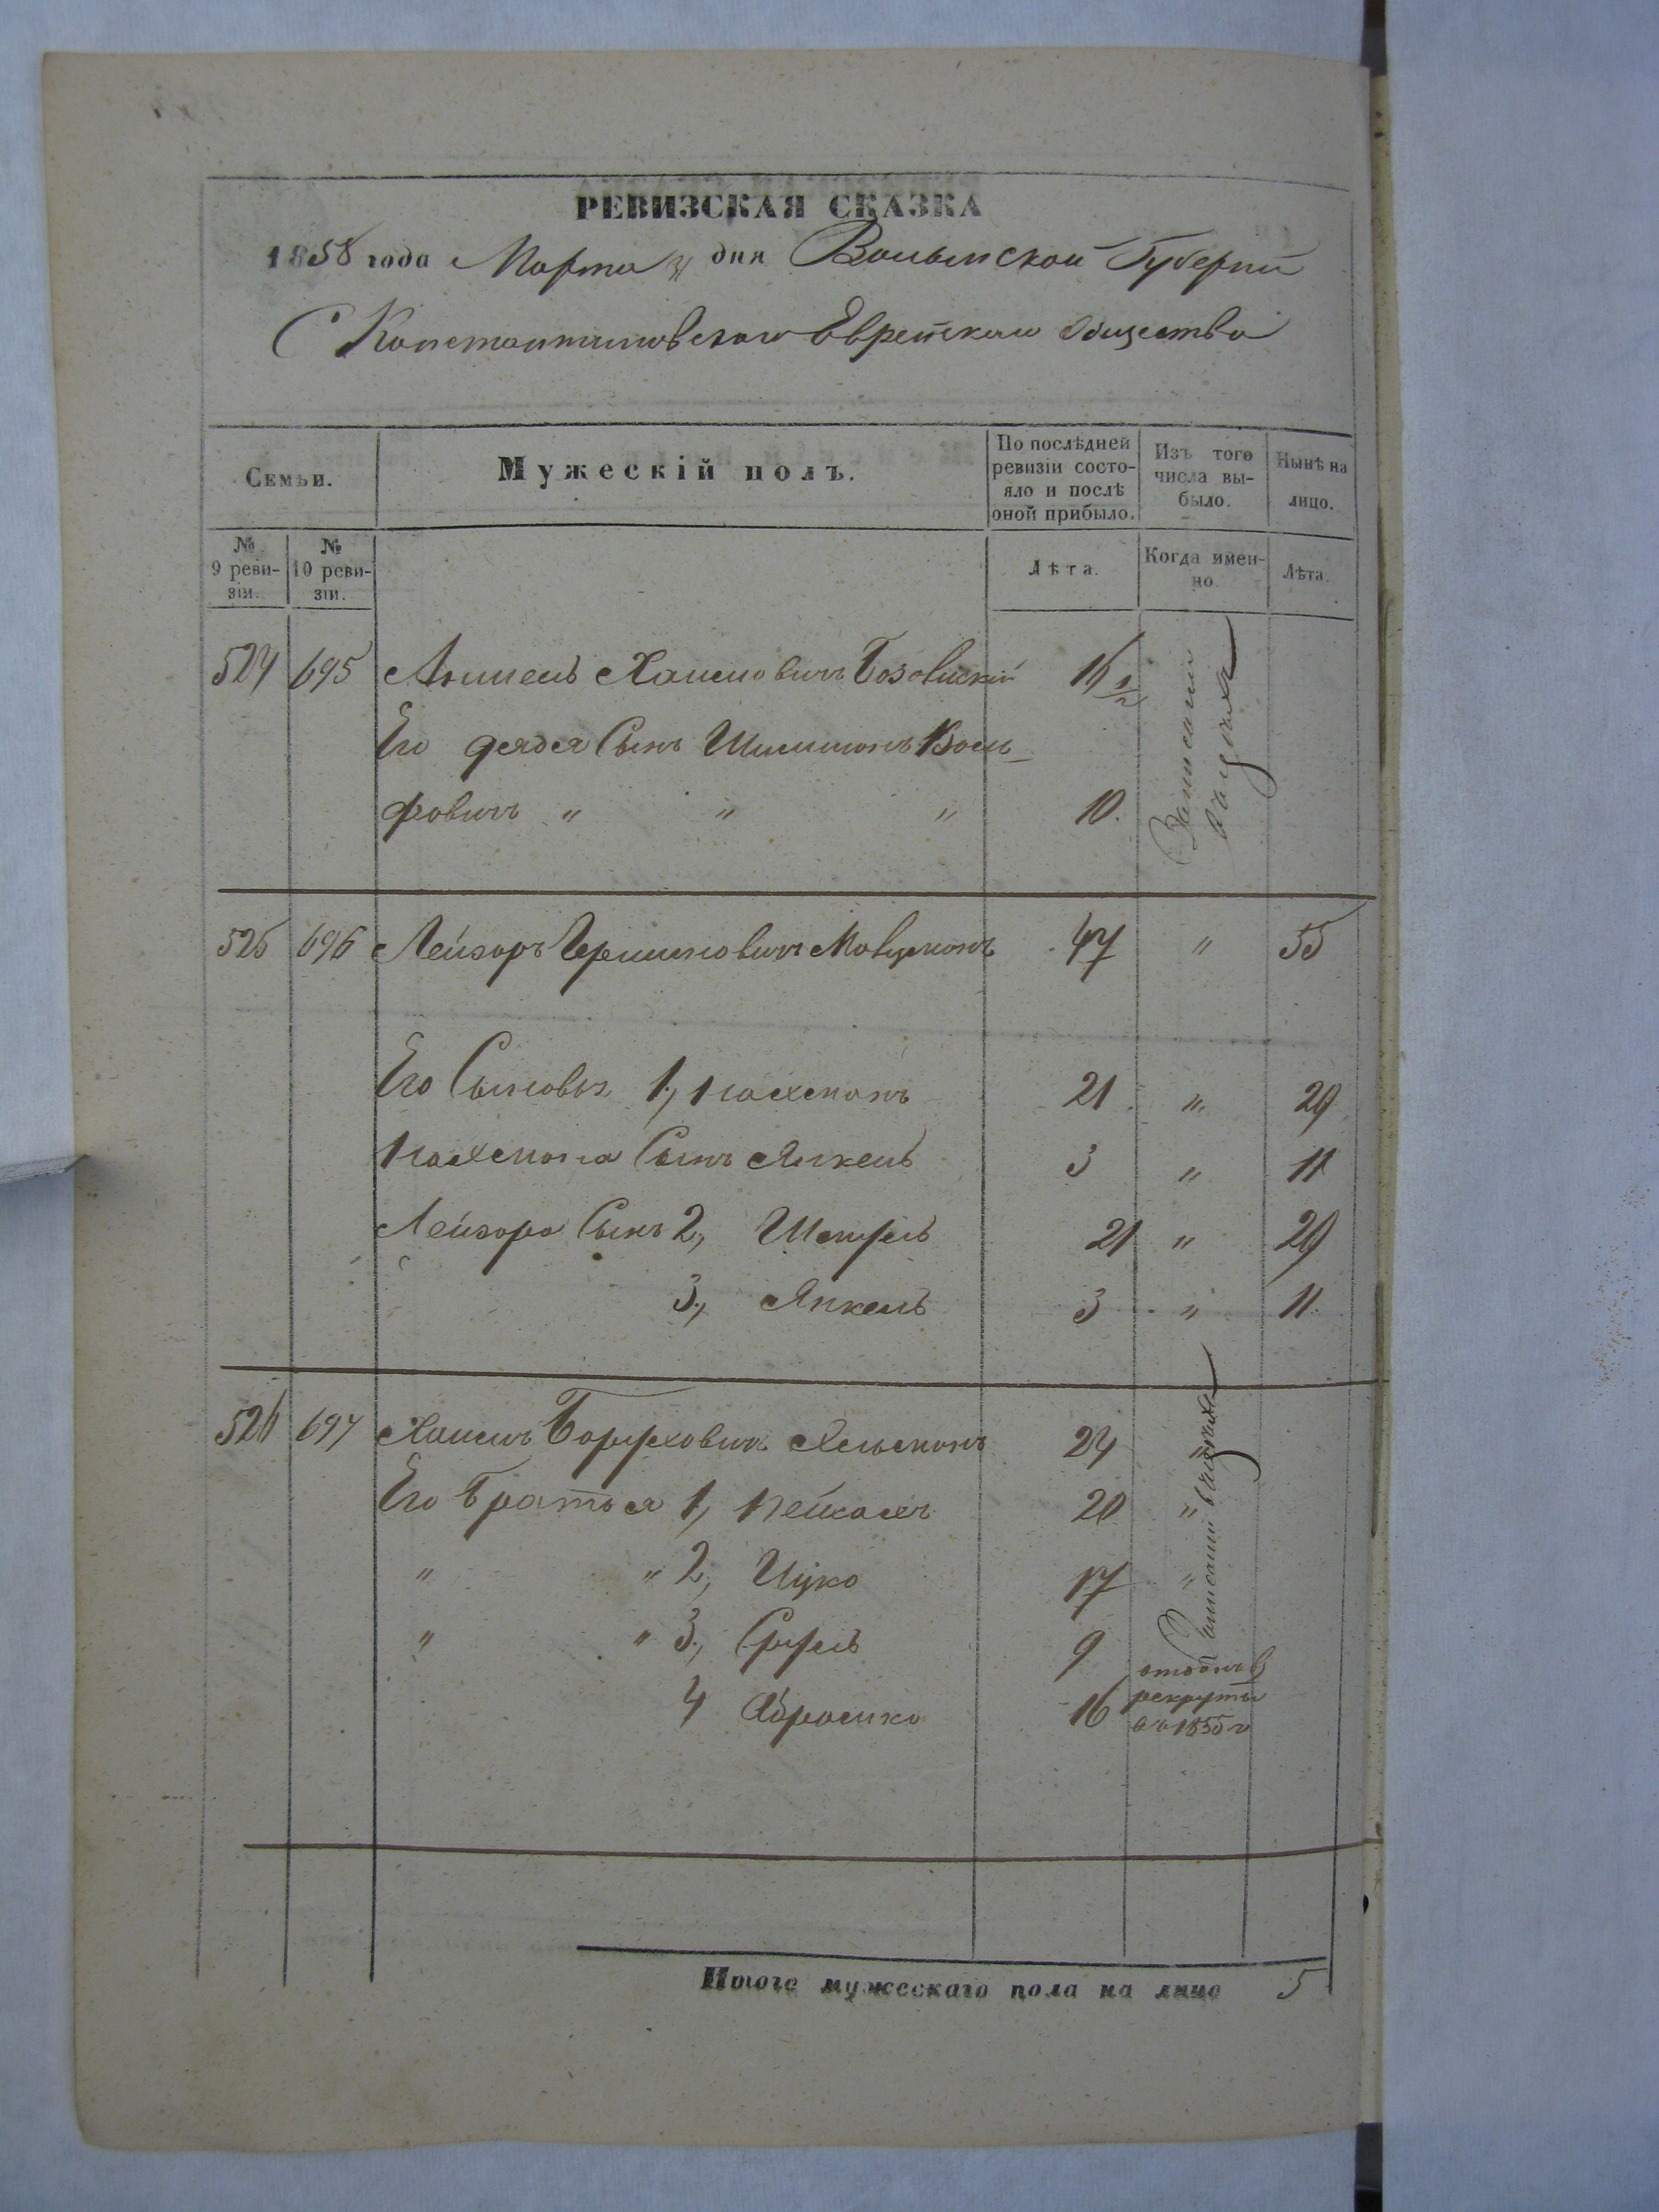 РЕВИЗСКАЯ СКАЗКА
1858 года Марта 31 дня Волынской Губерніи
С Константиновского Еврейскаго Общества
Семьи.
Мужескій полъ.
По послѣдней ревизіи состояло и послѣ оной прибыло.
Изъ того числа выбыло.
Нынѣ на лицо.
№ 9 ревизіи.
№ 10 ревизіи.
Лѣта.
Когда именно.
Лѣта.
524 695 Хаимовичъ 1/2
Его дядя Сынъ Шлиомонъ Воль-
фовичъ " " " 10.
Записаны
525 696 Лейзоръ Гершковичъ 47 " 55
Его Сыновья 1, Нахманъ 21 " 29
Нахмана Сынъ Янкель 3 " 11
Лейзора Сынъ 2, 21 " 29
3, Янкель 3 " 11
526 697 Хаимъ Боруховичъ 24 "
Его Братья 1, Пейсахъ 20 "
" " 2, Ицко 17 "
" " 3, Сруль 9
Записаны
4 Абрамко 16 отданъ в рекруты в 1855 г
Итого мужескаго пола на лицо 5